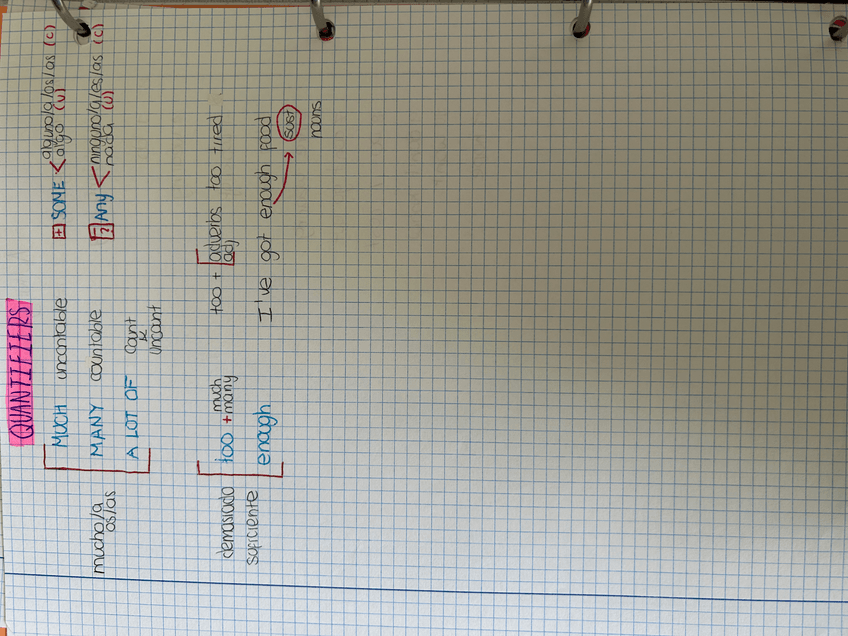 QUANTIFIERS
mucho/a
os/as
MUCH uncontable
MANY countable
A LOT OF count
&
uncount
+ SOME < alguno/a/os/as (C)
algo (U)
- ? Any < ninguno/a/os/as (C)
nada (U)
demasiado too + much
many
too + adverbs too tired
adj
suficiente enough
I've got enough food
sust
nouns